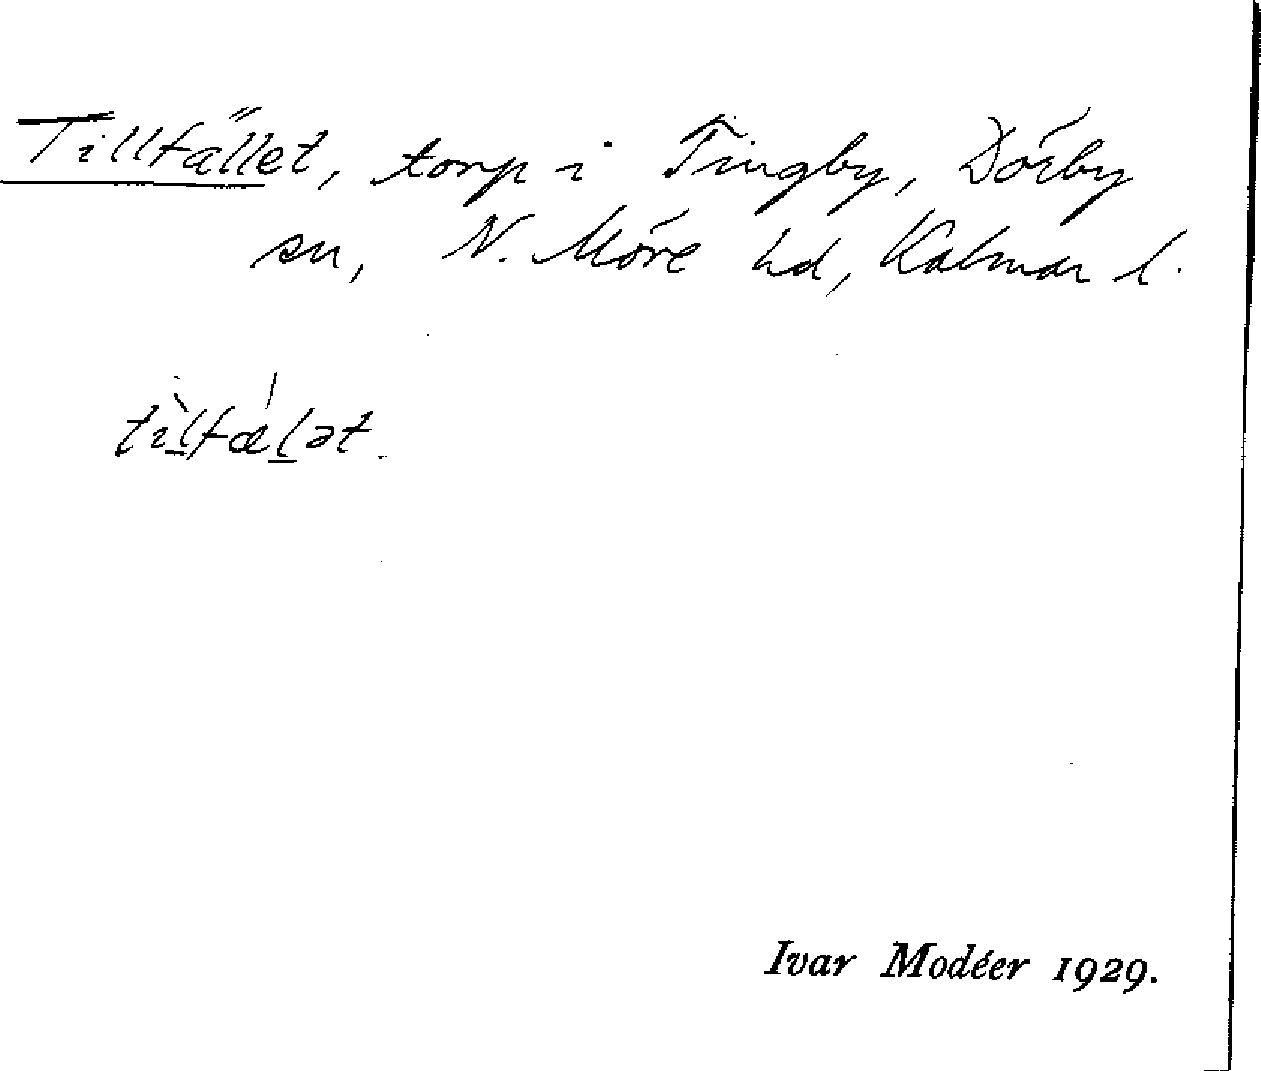 Tillfället, torp i Tingby, Dörby
sn, N. Möre hd, Kalmar l.
tìl̲fǽl̲ət.
Ivar Modéer 1929.